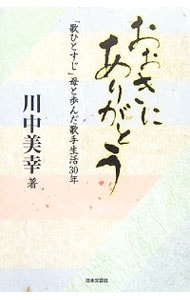 おおきに
ありがとう
「歌ひとすじ」母と歩んだ歌手生活30年
川中美幸 著
日本文芸社